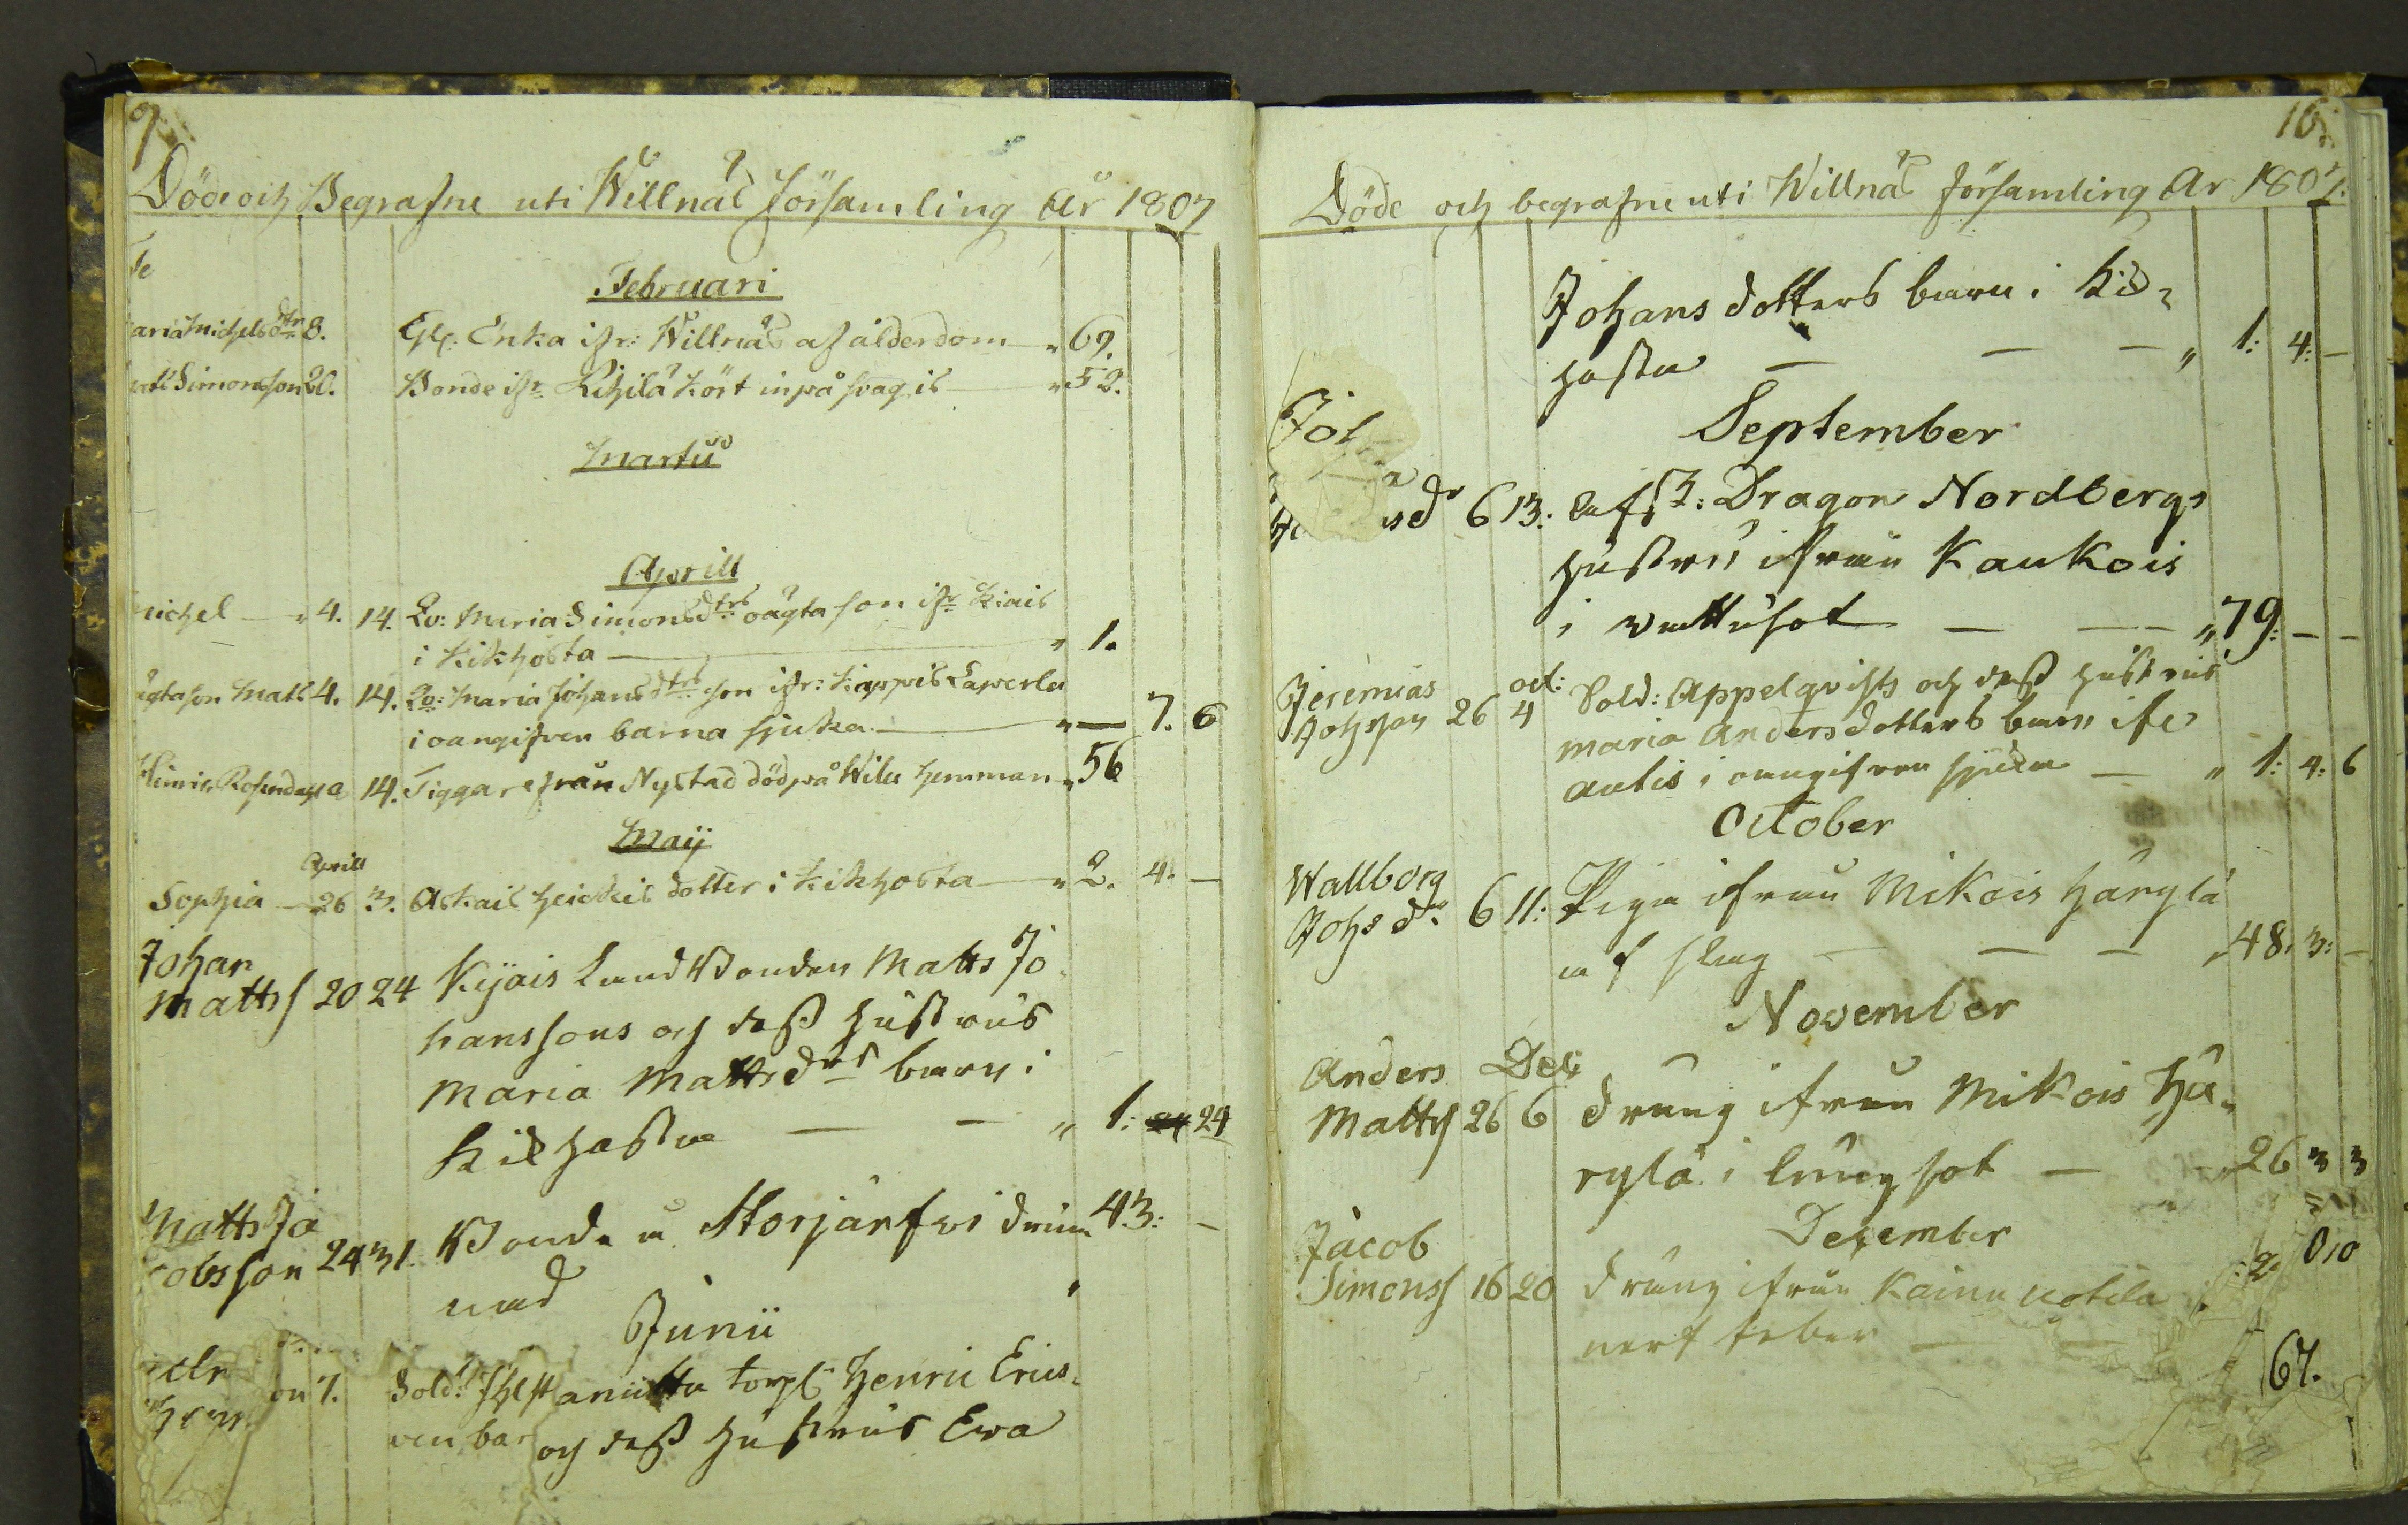 Döde och Begrafne uti Willnäs församling År 1807
Februari
aria Michelsdtr 8. Gl: Enka ifr: Willnäs af ålderdom " 69.
Simonsson 20. Bonde ifr Lihilä kört in på svag is " 52.
Martii
Aprill
Michel " 4. 14. Qv: Maria Simonsdtrs oägta son ifr Kiais
i kikhosta " 1.
ägta son Mats 4. 14. Qv: Maria Johansdtrs son ifr: Kappis Laperla
i oangifven barna sjuka " — 7. 6
Hinric Rosendahl a 14. Tiggare från Nystad död på Wilu hemman " 56
Maij
Aprill
Sophia 26 3. Askais Heickis dotter i kikhosta " 2. 4. —
Johan
Matts 20 24 Kijais Landbonden Matts Jo
hanssons och dess hustrus
Maria Mattsdrs barn i
kikhosta — — " 1: 24
Matts Ja
cobsson 24 31. Bonde Storjärfvi drunc 43: —
nad
Junii
on 7. Sold: torp: Henric Erics
ven bar och dess hustrus Ewa
165
Döde och begrafne uti Willnäs församling År 1807.
Johans dotters barn i kik
hosta — — — " 1: 4: —
September
Joh
sdr 6 13: Afsk: Dragon Nordbergs
hustru ifrån Kaukois
i vattusot — — — " 79: — —
Jeremias oct: Sold: Appelqvists och dess hustrus
Johsson 26 4 Maria Andersdotters barn ifr
Autis i oangifven sjuka — " 1: 4: 6
October
Wallborg
Johs dr 6 11: Piga ifrån Mikois Härylä
af slag — — — " 48: 3: —
November
Anders Dec:
Matts 26 6 dräng ifrån Mikois Hä
rylä i lungsot — " 26 3 3
December
Jacob
Simons 16 20 dräng ifrån Kainu Uotila i
nerf feber — —
67.